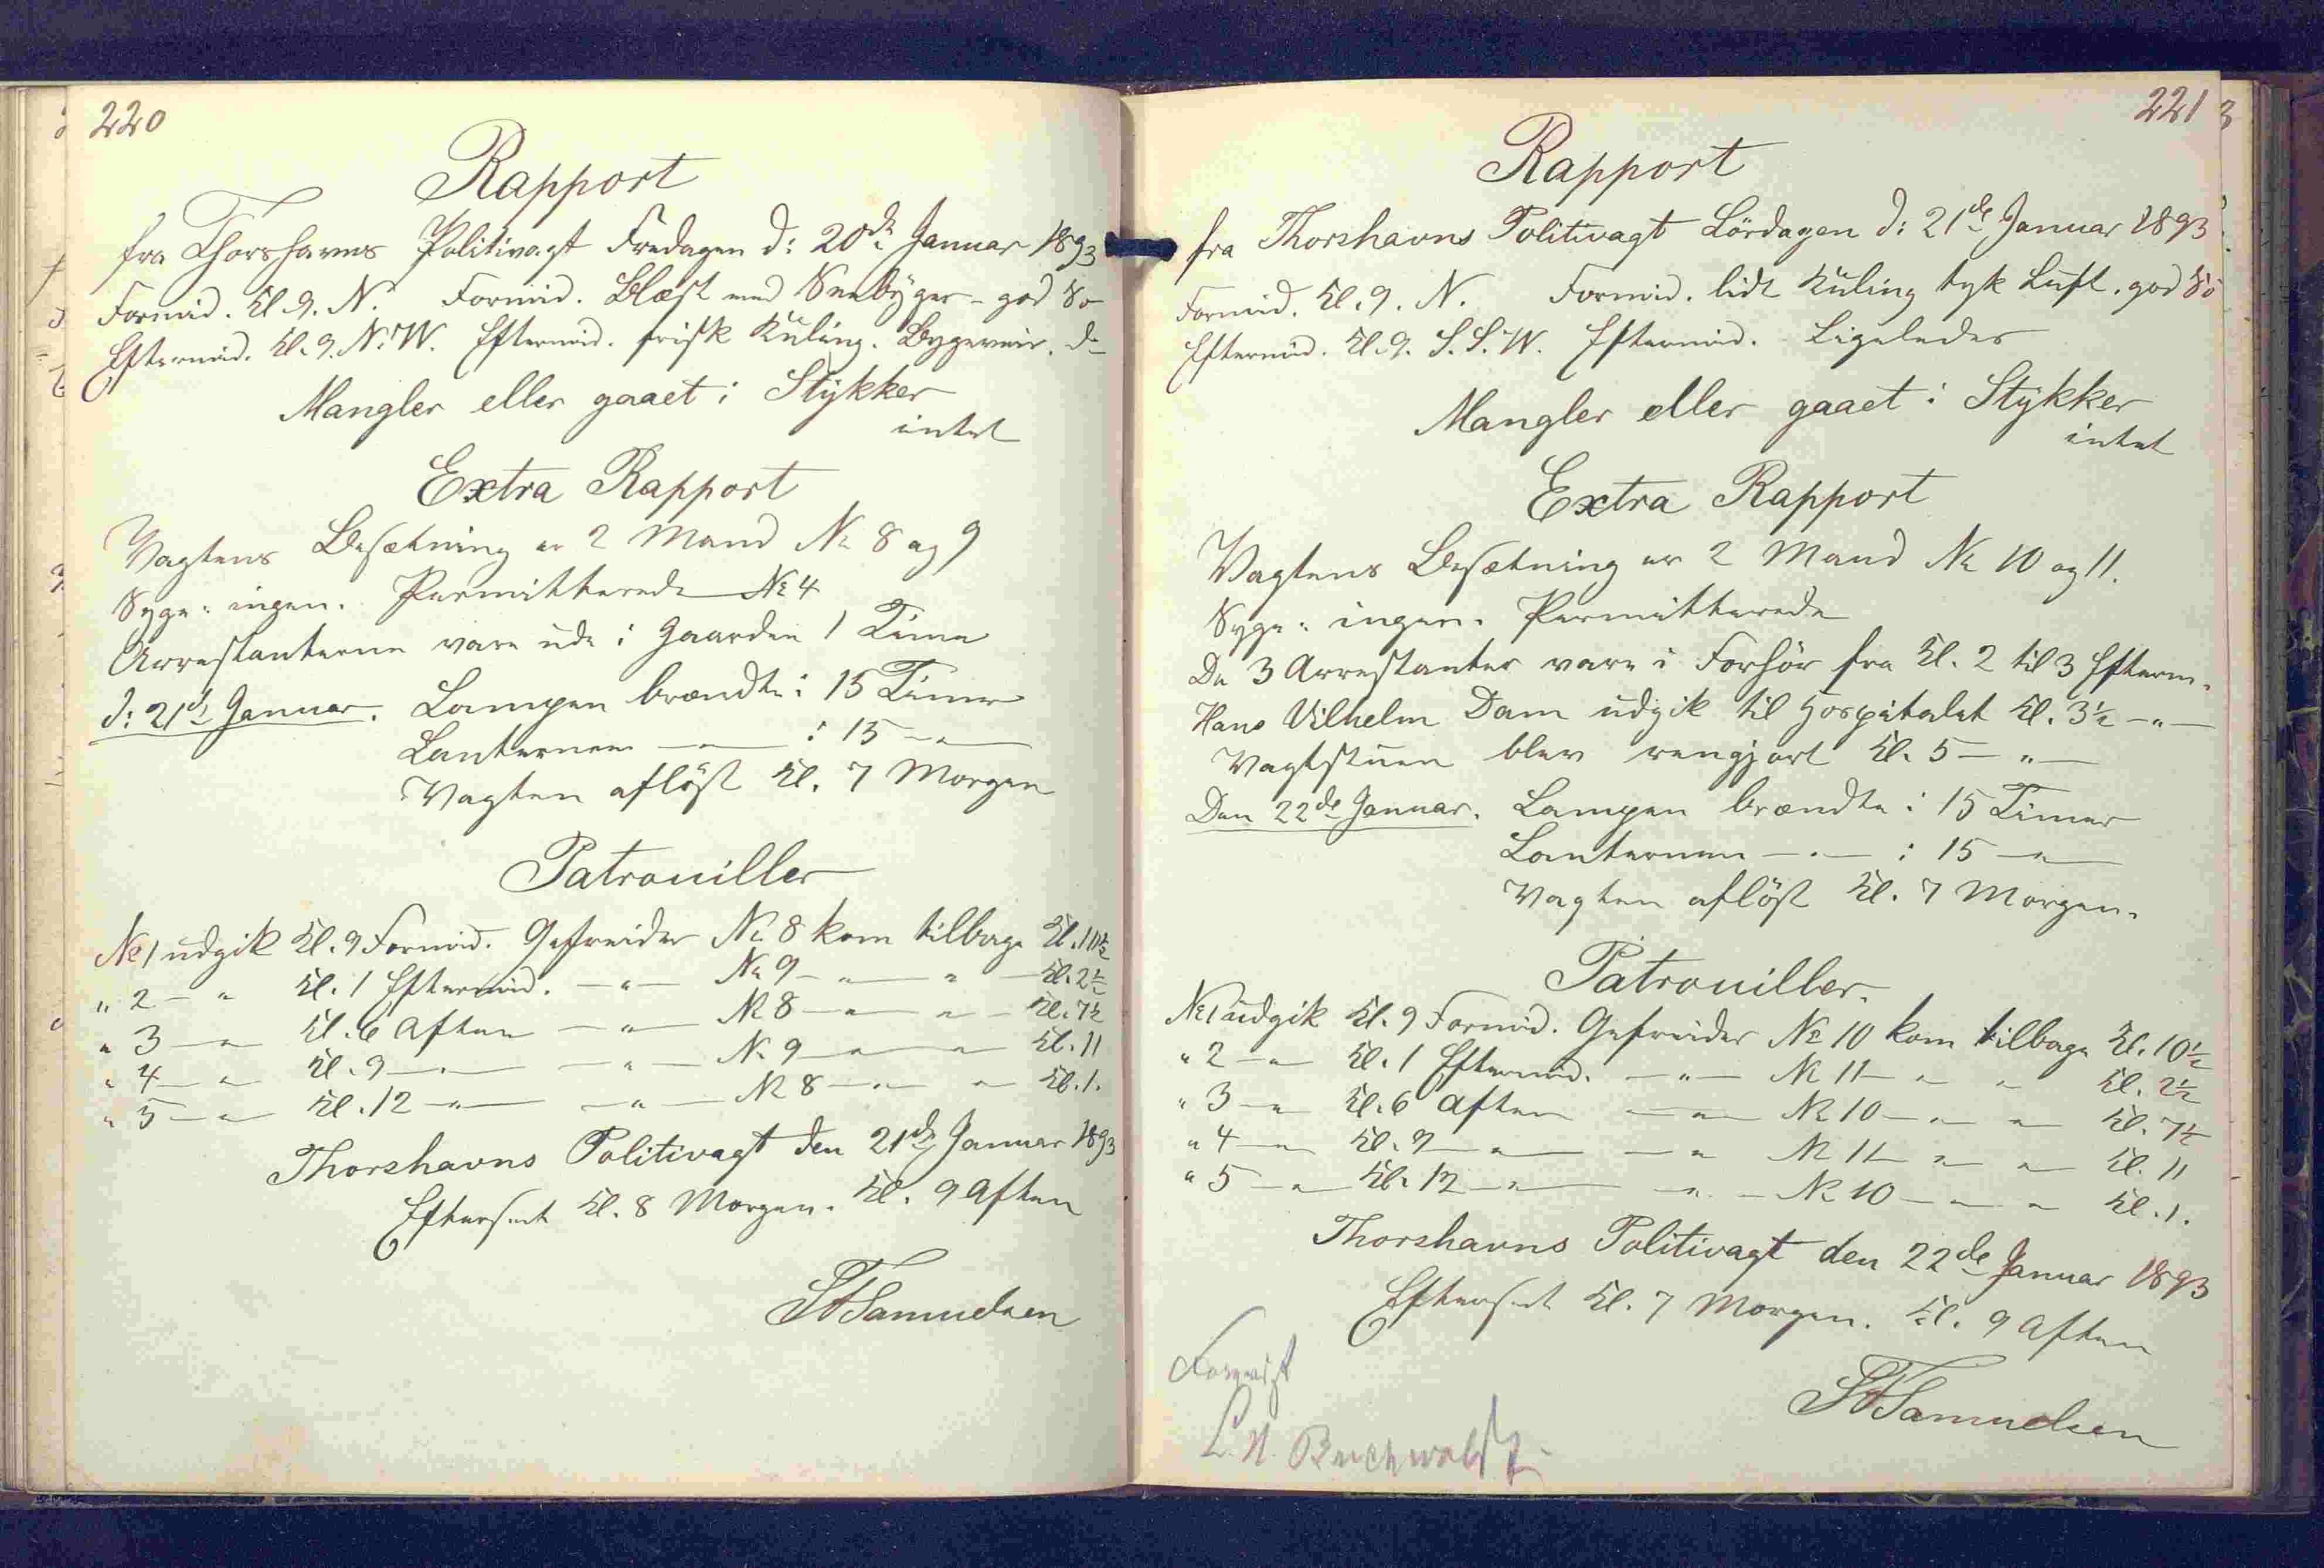 220
Rapport
fra Thorshavns Politivagt Fredagen d: 20de Januar 1893
Formid. Kl. 9. N. Formid. Blæst med Sneebyger - god Sö
Eftermid. Kl. 9. N.W. Eftermid. frisk Kuling. Bygeveir. do
Mangler eller gaaet i Stykker
intet
Extra Rapport
Vagtens Besætning er 2 Mand No 8 og 9
Syge: ingen. Permitterede No 4
Arrestanterne vare ude i Gaarden 1 Time
d: 21de Januar. Lampen brændte: 15 Timer
Lanternen — " — : 15 — " —
Vagten aflöst Kl. 7 Morgen
Patrouiller
No 1 udgik Kl. 9 Formid. Gefreider No 8 kom tilbage Kl. 10½
" 2 — " Kl. 1 Eftermid. — " — No 9 — " — " — Kl. 2½
" 3 — " Kl. 6 Aften — " — No 8 — " — " — Kl. 7½
" 4 — " Kl. 9 — " — — " — No 9 — " — " — Kl. 11
" 5 — " Kl. 12 — " — — " — No 8 — " — " — Kl. 1.
Thorshavns Politivagt den 21de Januar 1893
Efterseet Kl. 8 Morgen. Kl. 9 Aften
Samuelsen
221
Rapport
fra Thorshavns Politivagt Lördagen d: 21de Januar 1893
Formid. Kl. 9. N. Formid. lidt Kuling tyk Luft. god Sö
Eftermid. Kl. 9. S.S.W. Eftermid. Ligeledes
Mangler eller gaaet i Stykker
intet
Extra Rapport
Vagtens Besætning er 2 Mand No 10 og 11.
Syge: ingen. Permitterede
De 3 Arrestanter vare i Forhör fra Kl. 2 til 3 Efterm.
Hans Vilhelm Dam udgik til Hospitalet Kl. 3½ — " —
Vagtstuen blev rengjort Kl. 5 — " —
Den 22de Januar. Lampen brændte: 15 Timer
Lanternen — " — : 15 — " —
Vagten aflöst Kl. 7 Morgen.
Patrouiller.
No 1 udgik Kl. 9 Formid. Gefreider No 10 kom tilbage Kl. 10½
" 2 — " Kl. 1 Eftermid. — " — No 11 — " " Kl. 2½
" 3 — " Kl. 6 Aften — " — No 10 — " — " Kl. 7½
" 4 — " Kl. 9 — " — — " No 11 — " — " Kl. 11
" 5 — " — Kl. 12 — " — " — No 10 — " — " Kl. 1.
Thorshavns Politivagt den 22de Januar 1893
Efterseet Kl. 7 Morgen. Kl. 9 Aften
Samuelsen
Forevist
Buchwaldt